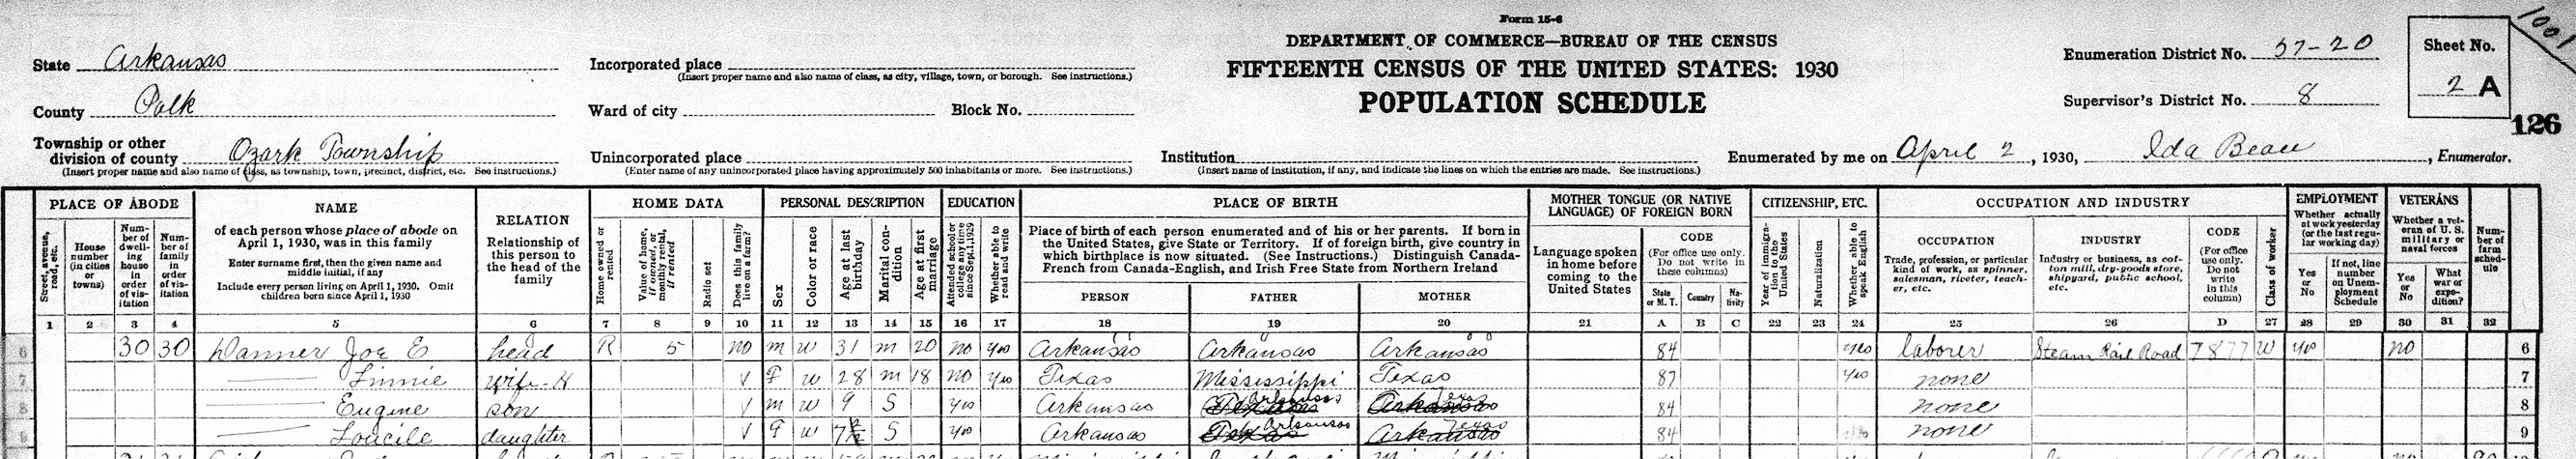 Form 15-6
1001
DEPARTMENT OF COMMERCE—BUREAU OF THE CENSUS
FIFTEENTH CENSUS OF THE UNITED STATES: 1930
POPULATION SCHEDULE
State Arkansas
County Polk
Township or other division of county Ozark Township
(Insert proper name and also name of class, as township, town, precinct, district, etc. See instructions.)
Incorporated place
(Insert proper name and also name of class, as city, village, town, or borough. See instructions.)
Ward of city Block No.
Unincorporated place
(Enter name of any unincorporated place having approximately 500 inhabitants or more. See instructions.)
Institution
(Insert name of institution, if any, and indicate the lines on which the entries are made. See instructions.)
Enumeration District No. 57-20
Supervisor's District No. 8
Sheet No.
2 A
126
Enumerated by me on April 2, 1930, Ida Beau, Enumerator.
PLACE OF ABODE
Street, avenue, road, etc.
House number (in cities or towns)
Number of dwelling house in order of visitation
Number of family in order of visitation
NAME
of each person whose place of abode on April 1, 1930, was in this family
Enter surname first, then the given name and middle initial, if any
Include every person living on April 1, 1930. Omit children born since April 1, 1930
RELATION
Relationship of this person to the head of the family
HOME DATA
Home owned or rented
Value of home, if owned, or monthly rental, if rented
Radio set
Does this family live on a farm?
PERSONAL DESCRIPTION
Sex
Color or race
Age at last birthday
Marital condition
Age at first marriage
EDUCATION
Attended school or college any time since Sept. 1, 1929
Whether able to read and write
PLACE OF BIRTH
Place of birth of each person enumerated and of his or her parents. If born in the United States, give State or Territory. If of foreign birth, give country in which birthplace is now situated. (See Instructions.) Distinguish Canada-French from Canada-English, and Irish Free State from Northern Ireland
PERSON FATHER MOTHER
MOTHER TONGUE (OR NATIVE LANGUAGE) OF FOREIGN BORN
Language spoken in home before coming to the United States
CODE
(For office use only. Do not write in these columns)
State or M. T. Country Nativity
CITIZENSHIP, ETC.
Year of immigration to the United States
Naturalization
Whether able to speak English
OCCUPATION AND INDUSTRY
OCCUPATION
Trade, profession, or particular kind of work, as spinner, salesman, riveter, teacher, etc.
INDUSTRY
Industry or business, as cotton mill, dry-goods store, shipyard, public school, etc.
CODE
(For office use only. Do not write in this column)
Class of worker
EMPLOYMENT
Whether actually at work yesterday (or the last regular working day)
Yes or No
If not, line number on Unemployment Schedule
VETERANS
Whether a veteran of U. S. military or naval forces
Yes or No
What war or expedition?
Number of farm schedule
1 2 3 4 5 6 7 8 9 10 11 12 13 14 15 16 17 18 19 20 21 A B C 22 23 24 25 26 D 27 28 29 30 31 32
6 30 30 Danner Joe E head R 5 no m w 31 m 20 no yes Arkansas Arkansas Arkansas 84 yes laborer Steam Rail Road 7877 W yes no 6
7 Linnie wife-H V F w 28 m 18 no yes Texas Mississippi Texas 87 yes none 7
8 Eugene son V m w 9 S yes Arkansas Texas Arkansas Arkansas Texas 84 none 8
9 Loucile daughter V F w 7 S yes Arkansas Texas Arkansas Arkansas Texas 84 none 9